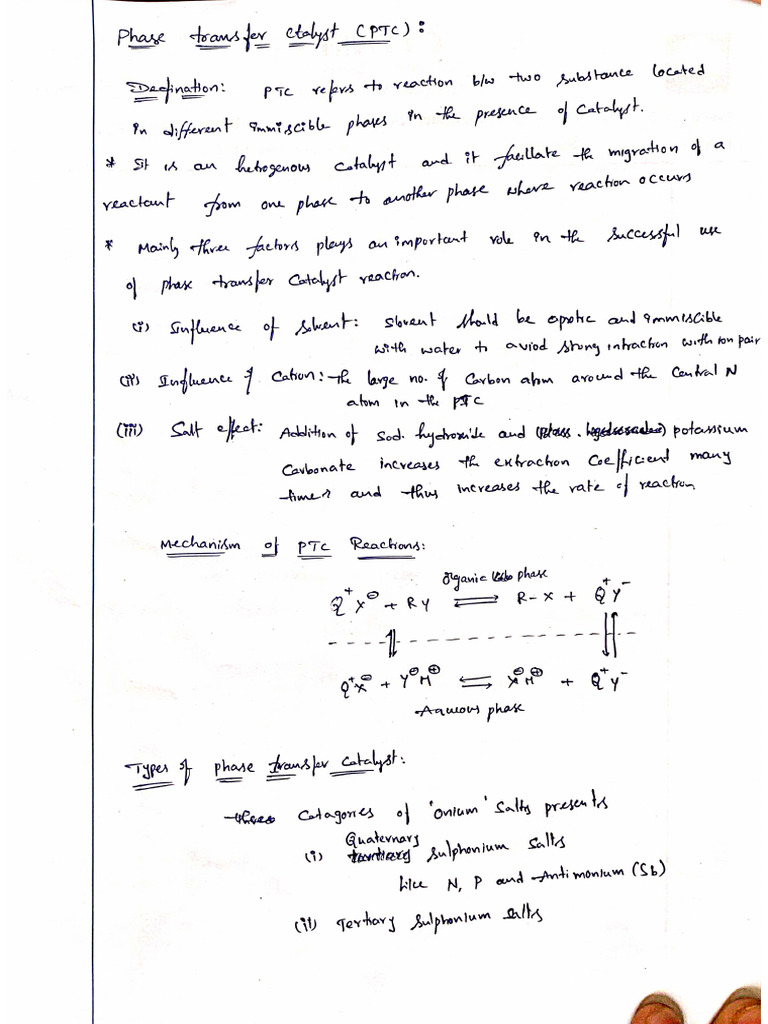 Phase transfer Ctalyst (PTC):
Deefination: PTC refers to reaction b/w two substance located
in different immiscible phases in the presence of Catalyst.
* It is an hetrogenous catalyst and it facillate the migration of a
reactant from one phase to another phase where reaction occurs
* Mainly three factors plays an important role in the successful use
of phase transfer Catalyst reaction.
(i) Influence of Solvent: Slovent should be aprotic and immiscible
with water to aviod strong intraction with ion pair
(ii) Influence of Cation: The large no. of Carbon atom around the Central N
atom in the PTC
(iii) Salt effect: Addition of Sod. hydroxide and potassium
Carbonate increases the extraction Coefficient many
times and thus increases the rate of reaction
Mechanism of PTC Reactions:
Organic phase
Q⁺X⊖ + RY ⇌ R-X + Q⁺Y⁻
Q⁺X⊖ + Y⊖M⊕ ⇌ X⊖M⊕ + Q⁺Y⁻
Aqueous phase
Types of phase transfer Catalyst:
Catagories of 'onium' Salts presents
(i) Quaternary Sulphonium Salts
like N, P and Antimonium (Sb)
(ii) Tertiary Sulphonium Salts